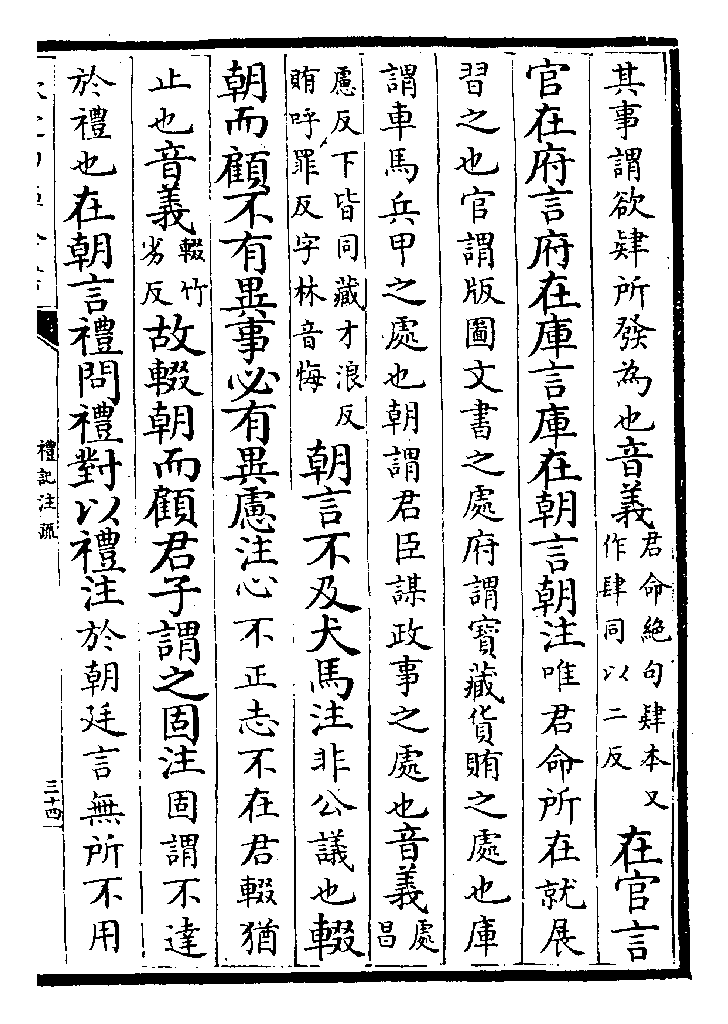 其事謂欲肄所發為也音義君命絶句肄本又作肆同以二反在官言
官在府言府在庫言庫在朝言朝注唯君命所在就展
習之也官謂版圖文書之處府謂寶藏貨賄之處也庫
謂車馬兵甲之處也朝謂君臣謀政事之處也音義處昌
慮反下皆同藏才浪反賄呼罪反字林音悔朝言不及犬馬注非公議也輟
朝而顧不有異事必有異慮注心不正志不在君輟猶
止也音義輟竹劣反故輟朝而顧君子謂之固注固謂不達
於禮也在朝言禮問禮對以禮注於朝廷言無所不用
禮記注疏
三十四